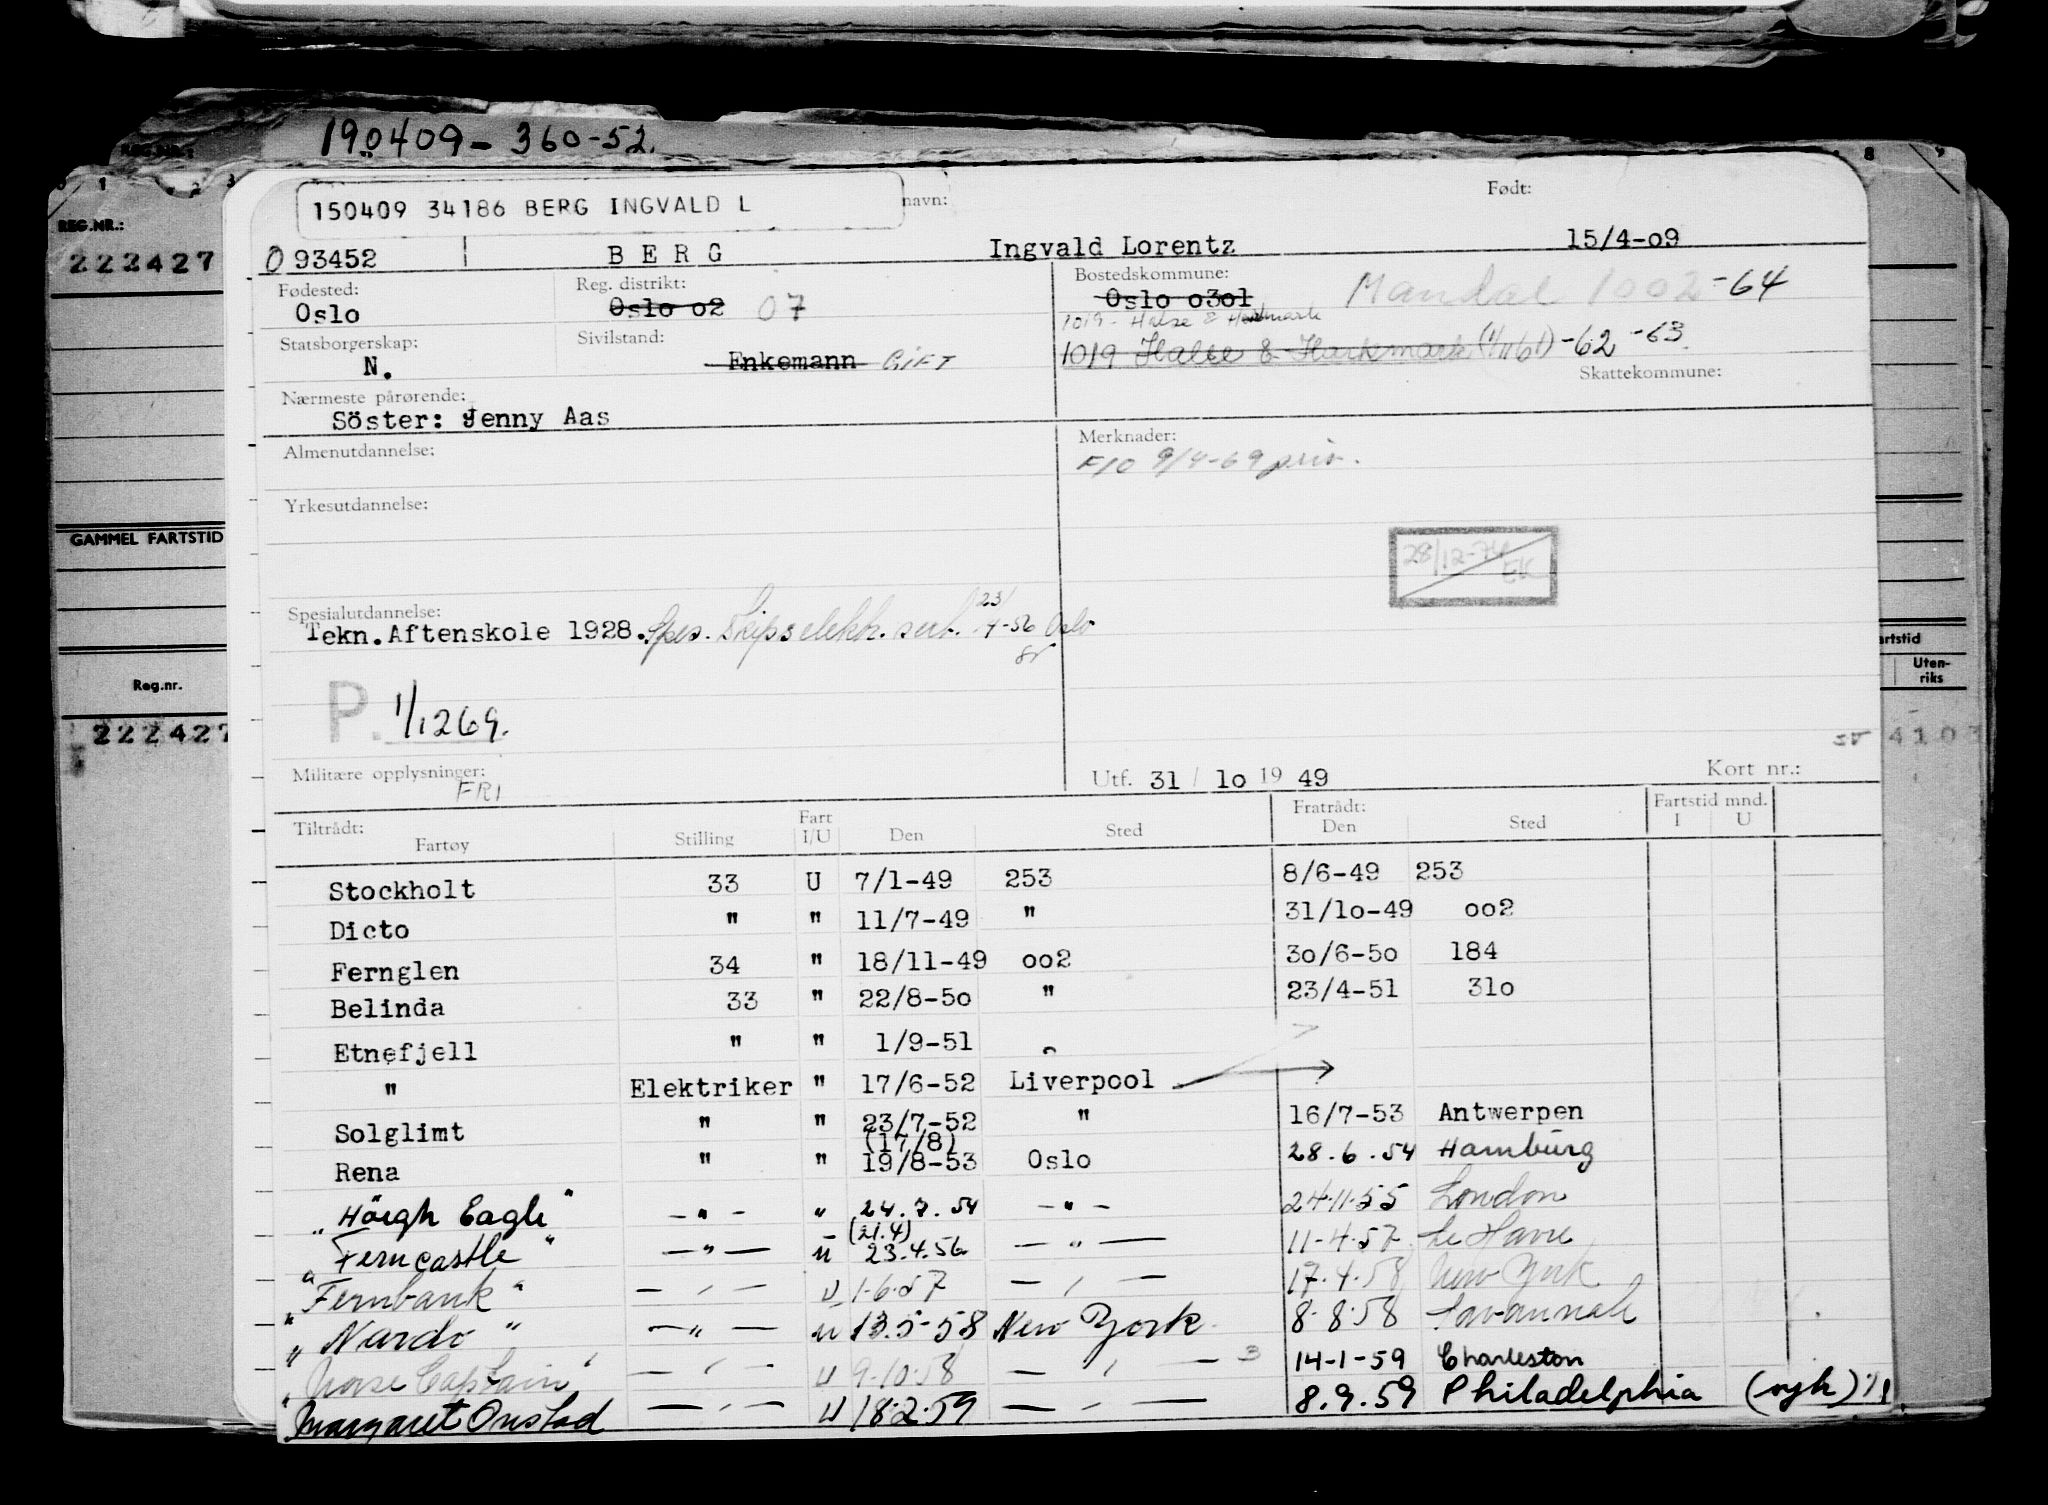 190409-360-52.
REG.NR.:
222427
GAMMEL FARTSTID
Reg.nr.
222427
150409 34186 BERG INGVALD L
navn:
Født:
093452 BERG Ingvald Lorentz 15/4-o9
Fødested:
Oslo
Reg. distrikt:
Oslo o2 07
Bostedskommune:
Oslo o3o1 Mandal 1002-64
1019 - Halse & Harkmark
1019 Halse & Harkmark (1/1161) -62 -63
Statsborgerskap:
N.
Sivilstand:
Enkemann GIFT
Skattekommune:
Nærmeste pårørende:
Söster: Jenny Aas
Almenutdannelse:
Merknader:
F10 9/4-69 priv.
Yrkesutdannelse:
28/12-74 EK
Spesialutdannelse:
Tekn.Aftenskole 1928. Spes. Skipselektr. sert. 23/4-56 Oslo
P. 1/1269.
Militære opplysninger:
FRI
Utf. 31 / 1o 19 49
Kort nr.:
artstid
Uten-
riks
4103
Tiltrådt:
Fartøy Stilling Fart I/U Den Sted Fratrådt: Den Sted Fartstid mnd. I U
Stockholt 33 U 7/1-49 253 8/6-49 253
Dicto " " 11/7-49 " 31/1o-49 oo2
Fernglen 34 " 18/11-49 oo2 3o/6-5o 184
Belinda 33 " 22/8-5o " 23/4-51 31o
Etnefjell " " 1/9-51 "
" Elektriker " 17/6-52 Liverpool
Solglimt " " 23/7-52 " 16/7-53 Antwerpen
Rena " " (17/8) 19/8-53 Oslo 28.6.54 Hamburg
"Höegh Eagle" -"- " 24.7.54 -"- 24.11.55 London
"Ferncastle" -"- u (21.4) 23.4.56 -"- 11-4.57 Le Havre
"Fernbank" -"- U 1.6.57 -"- 17.4.58 New York
"Nardo" -"- u 13.5-58 New York 8.8.58 Savannah
"Norse Captain" -"- U 9.10.58 -"- 3 14-1-59 Charleston
"Margaret Onstad -"- U 18.2.59 -"- 8.9.59 Philadelphia (syk)